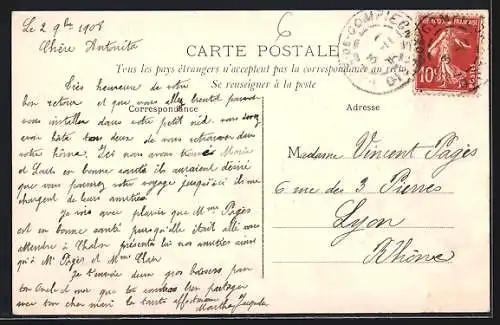 Le 2 9bre 1908
Chère Antonita
6
CARTE POSTALE
Tous les pays étrangers n'acceptent pas la correspondance au
Se renseigner à la poste
Correspondance
Adresse
COMPIEG
10
POSTES
Très heureuse de votre
bon retour et que vous allez bientôt pouvoir
vous installer dans votre petit nid, vous
avez hâte tous deux de vous retrouver dans
votre home. Ici nous avons trouvé Marie
et Louis en bonne santé ils auraient désiré
que vous poussiez votre voyage jusqu'ici ils me
chargent de leurs amitiés.
Je vois avec plaisir que Mme Pagès
est en bonne santé puisqu'elle était allé vous
attendre à Chalon présente lui nos amitiés ainsi
qu'à Mr Pagès et Mme
Je t'envoie deux gros baisers pour
ton oncle et moi que tu voudras bien partager
avec ton cher mari ta tante affectionnée
Marthe
Madame Vincent Pagès
6 rue des 3 Pierres
Lyon
Rhône